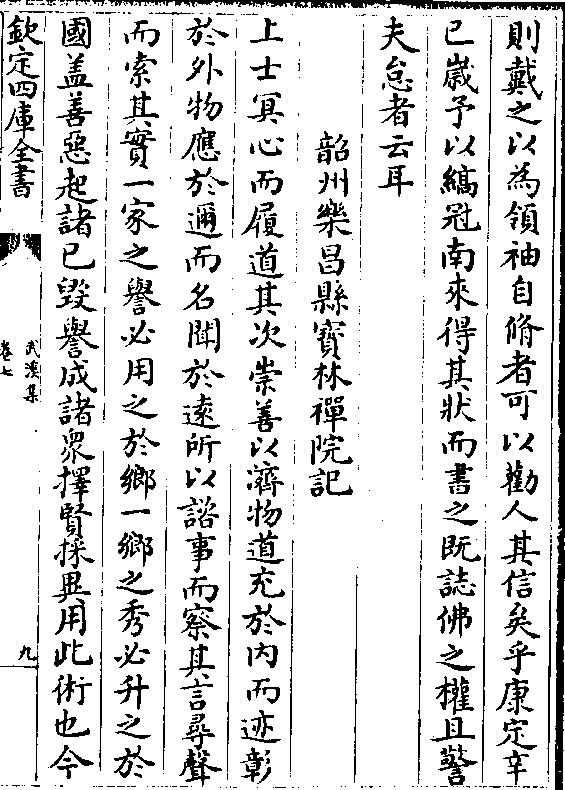 則戴之以為領袖自脩者可以勸人其信矣乎康定辛
巳嵗予以縞冠南來得其狀而書之既誌佛之權且警
夫怠者云耳
韶州樂昌縣寳林禪院記
上士冥心而履道其次崇善以濟物道充於内而迹彰
於外物應於邇而名聞於逺所以諮事而察其言尋聲
而索其實一家之譽必用之於鄉一鄉之秀必升之於
國盖善惡起諸已毀譽成諸衆擇賢採異用此術也今
欽定四庫全書
武溪集
卷七
九